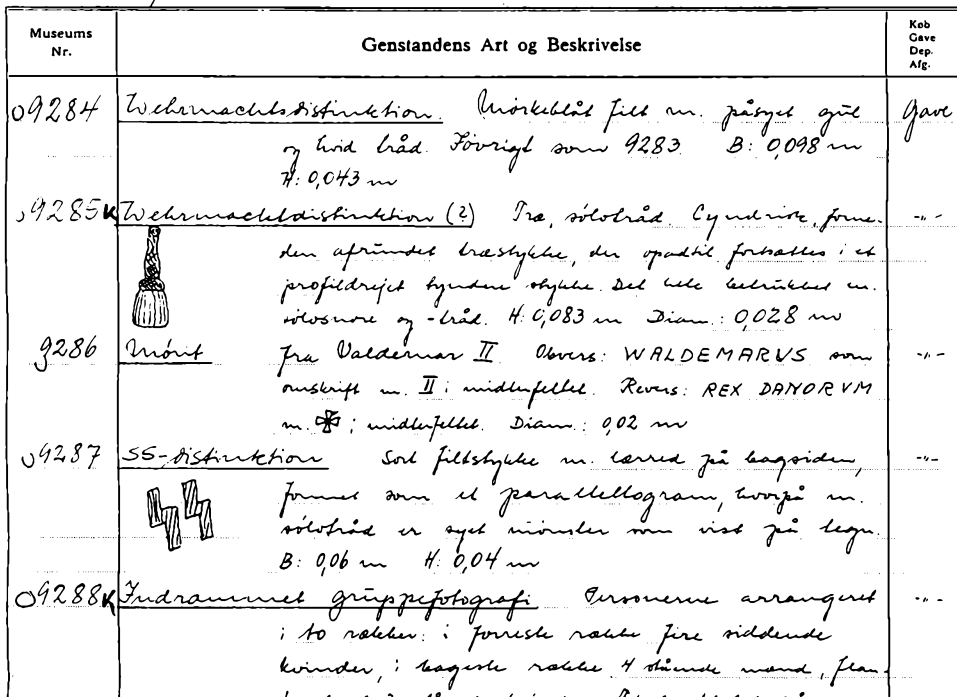 Museums Nr. Genstandens Art og Beskrivelse Køb Gave Dep. Afg.
09284 Wehrmachtsdistinktion. Mörkeblåt filt m. påsyet gul Gave
og hvid tråd. Iøvrigt som 9283 B: 0,098 m
H: 0,043 m
09285K Wehrmachtdistinktion (?) Træ, sölvtråd. Cylindrisk, forne- -"-
den afrundet træstykke, der opadtil fortsættes i et
profildrejet tyndere stykke. Det hele betrukket m.
sölvsnore og -tråd. H: 0,083 m Diam.: 0,028 m
9286 Mönt fra Valdemar II. Obvers: WALDEMARVS som -"-
omskrift m. II i midterfeltet. Revers: REX DANORVM
m. ✠ i midterfeltet. Diam.: 0,02 m
09287 SS-distinktion Sort filtstykke m. lærred på bagsiden, -"-
formet som et parallellogram, hvorpå m.
sölvtråd er syet mönster som vist på tegn.
B: 0,06 m H: 0,04 m
09288K Indrammet gruppefotografi Personerne arrangeret -"-
i to rækker: i forreste række fire siddende
kvinder, i bageste række 4 stående mænd, flan-